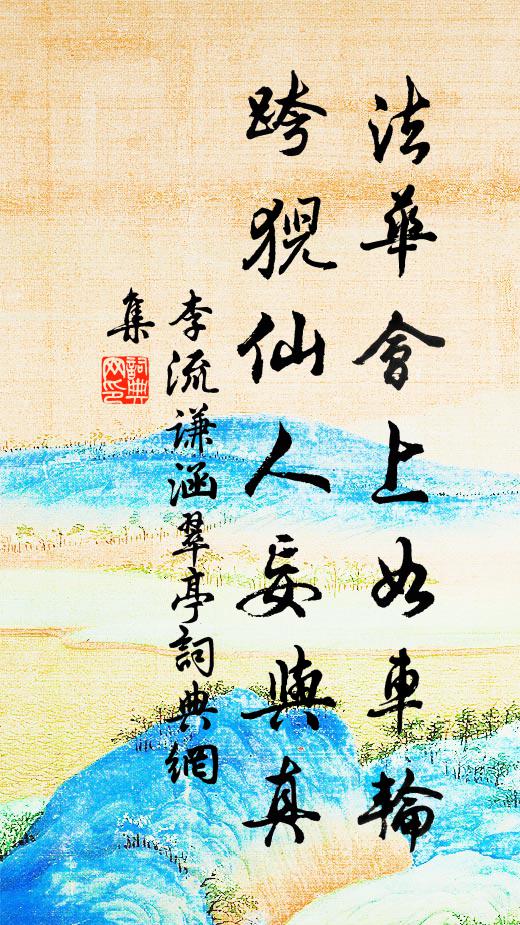 法華會上如車輪
跨猊仙人妄與真
李流謙涵翠亭詞典網
集
詞典
网印